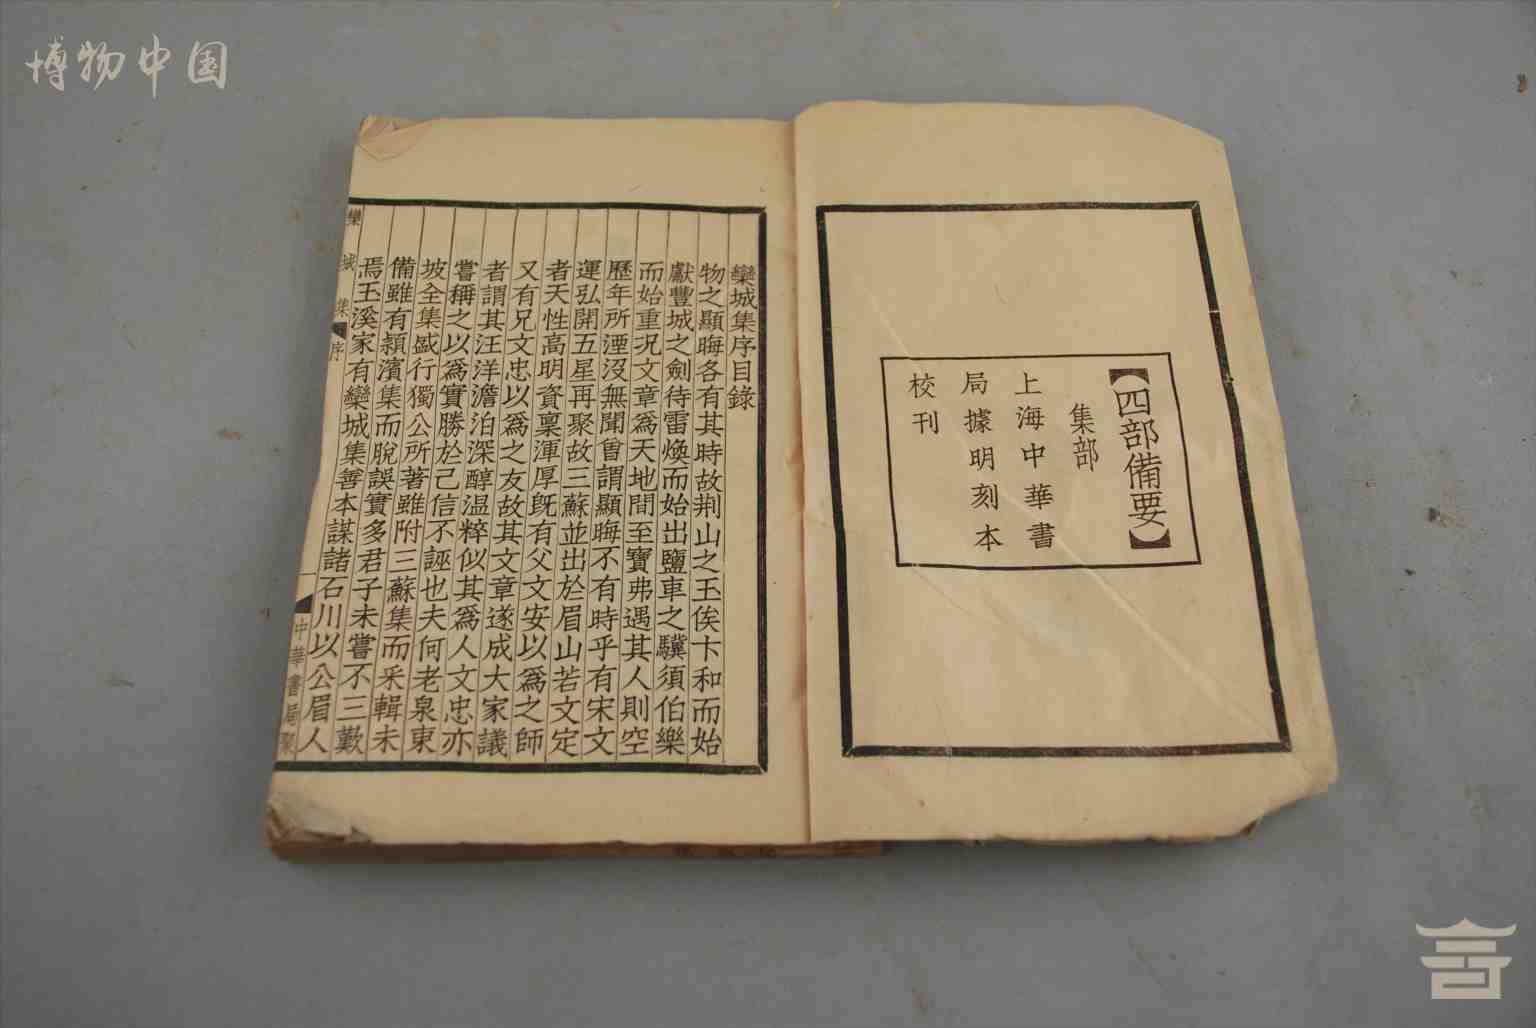 博物中国
【四部備要】
集部
上海中華書
局據明刻本
校刊
欒城集序目錄
物之顯晦各有其時故荆山之玉俟卞和而始
獻豐城之劍待雷煥而始出鹽車之驥須伯樂
而始重况文章爲天地間至寶弗遇其人則空
歷年所湮沒無聞曾謂顯晦不有時乎有宋文
運弘開五星再聚故三蘇並出於眉山若文定
者天性高明資稟渾厚既有父文安以爲之師
又有兄文忠以爲之友故其文章遂成大家議
者謂其汪洋澹泊深醇温粹似其爲人文忠亦
嘗稱之以爲實勝於己信不誣也夫何老泉東
坡全集盛行獨公所著雖附三蘇集而采輯未
備雖有潁濱集而脫誤實多君子未嘗不三歎
焉玉溪家有欒城集善本謀諸石川以公眉人
欒城集 序 一 中華書局聚